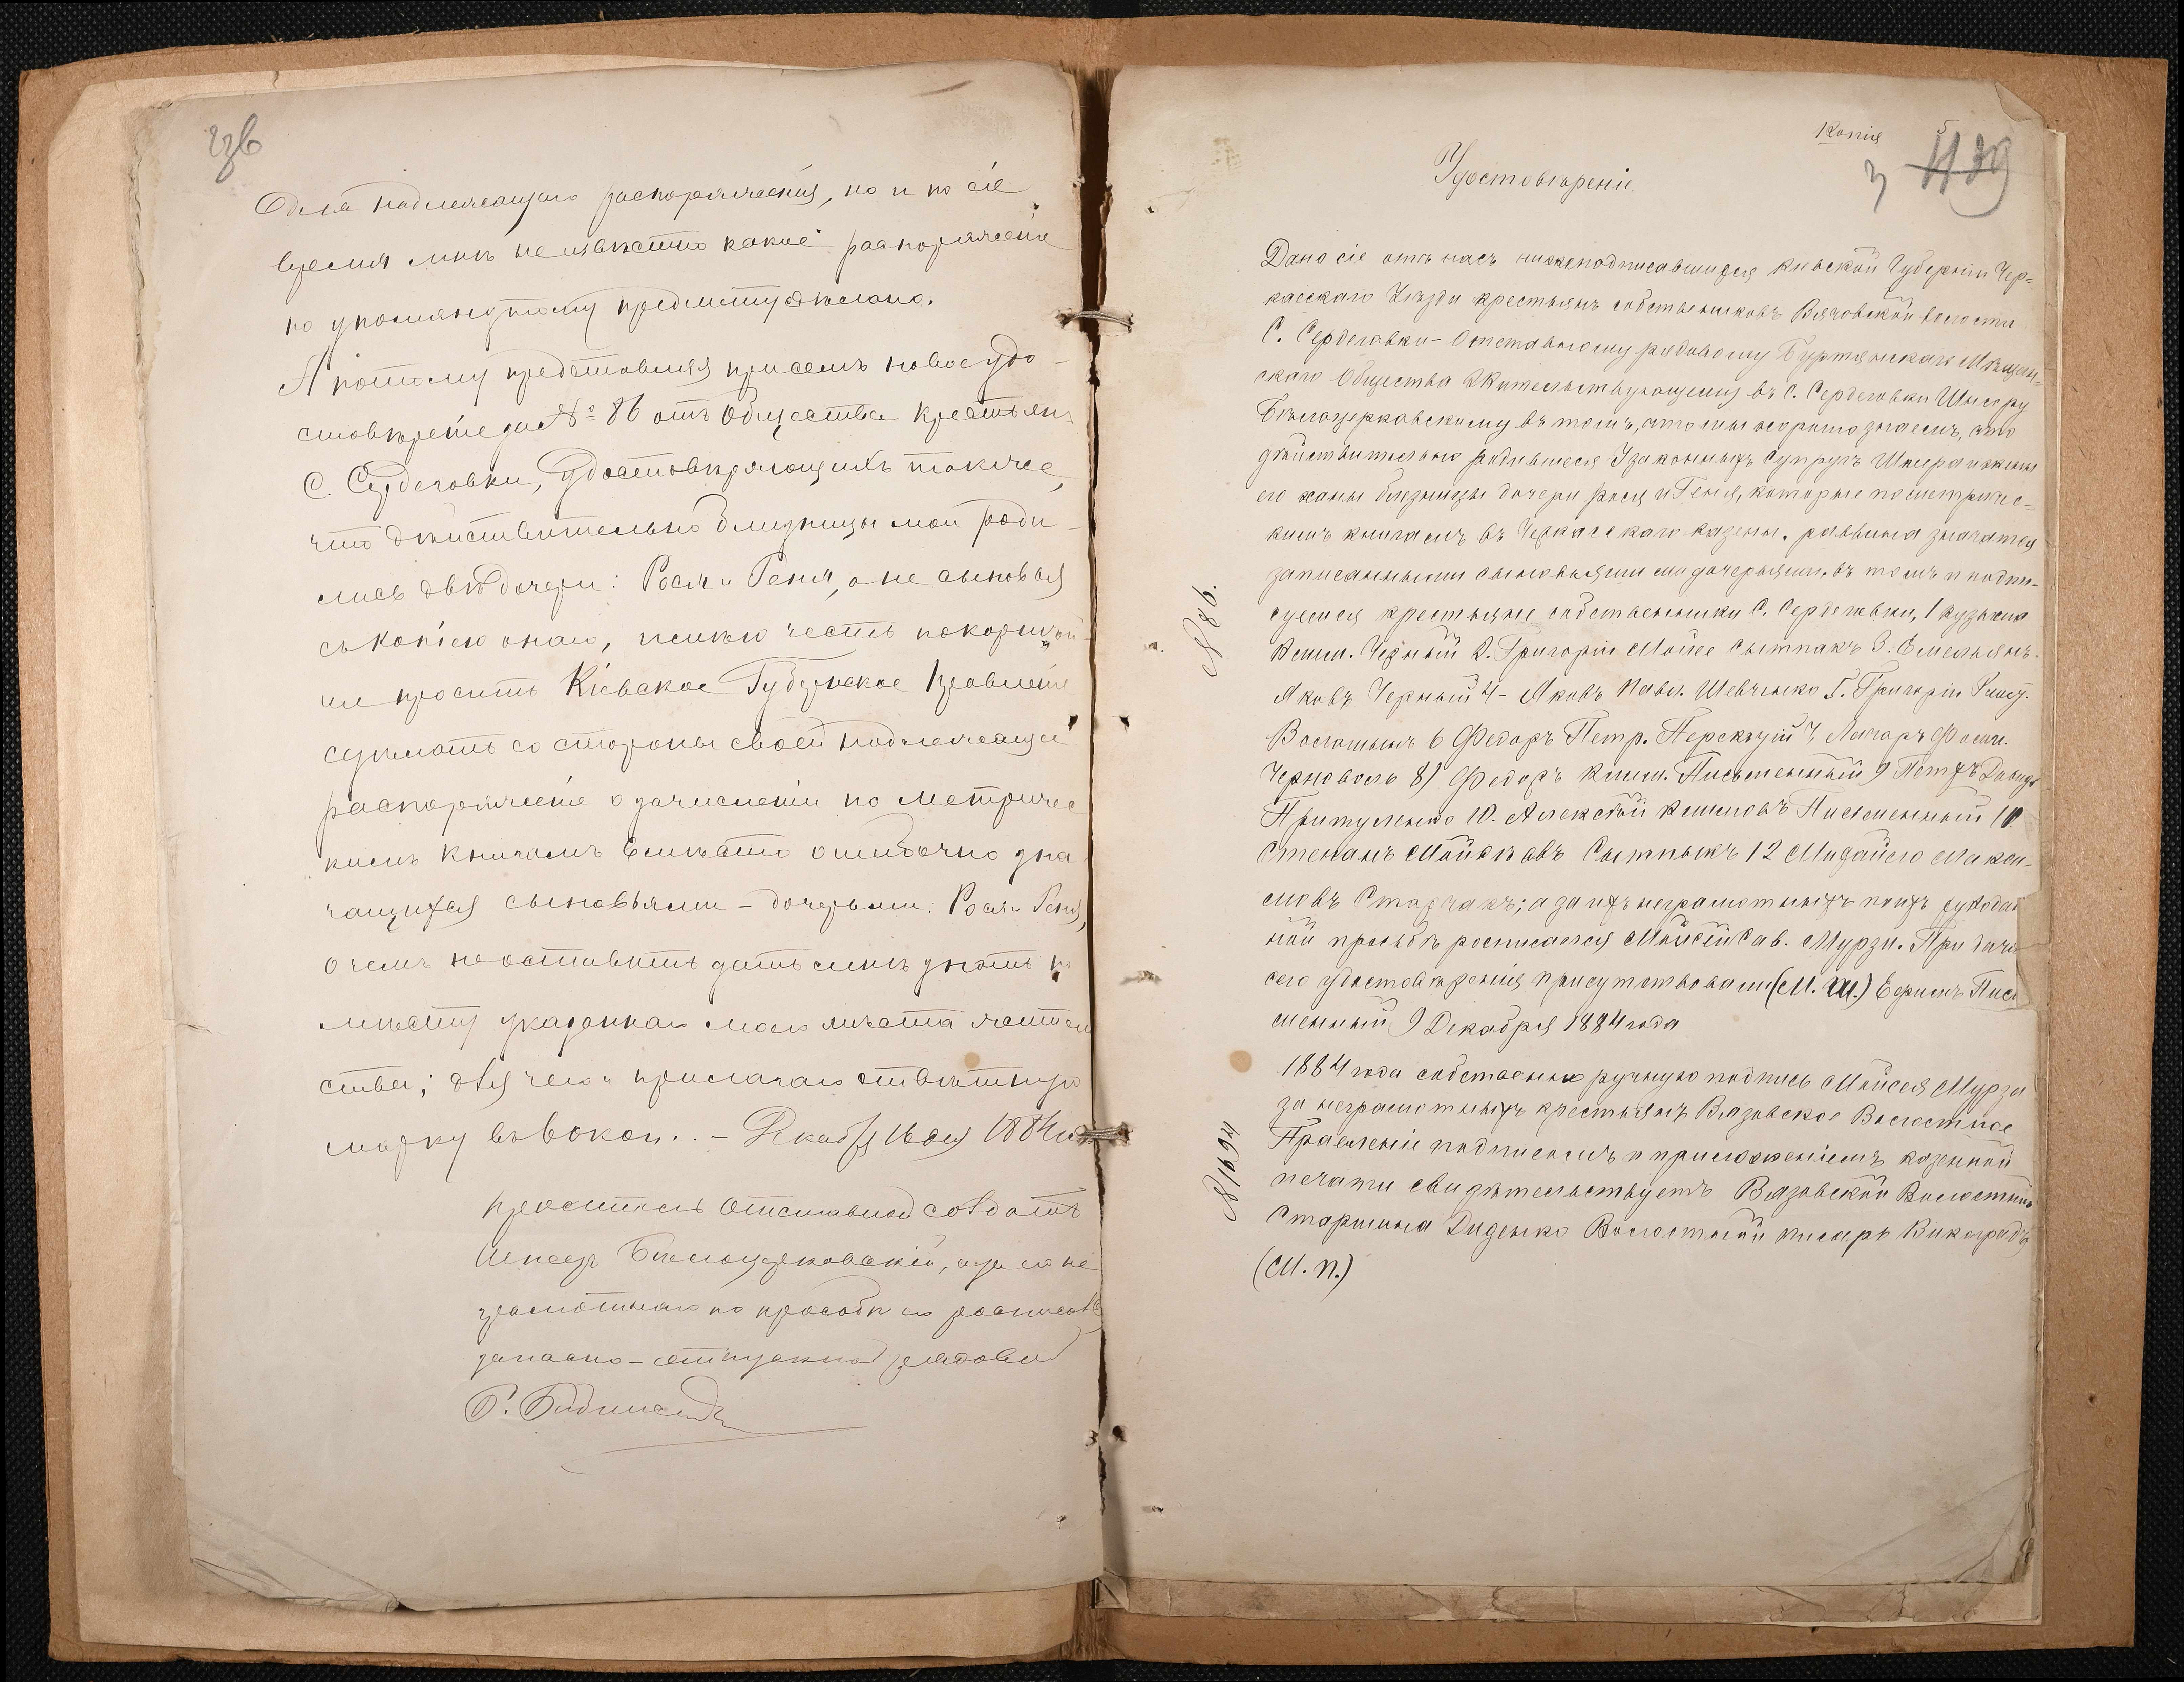 Для надлежащаго распоряженія, но и по сіе
время мнѣ не извѣстно какое распоряженіе
по упомянутому предмету сдѣлано.
А потому представляя при семъ новое удо-
стовѣреніе за № 86 отъ Общества крестьянъ
С. Сердеговки, удостовѣряющихъ также,
что дѣйствительно близницы мои роди-
лись двѣ дочери: Рося и Геня, а не сыновья
съ копіею онаго, имѣю честь покорнѣй-
ше просить Кіевское Губернское Правленіе
сдѣлать со стороны своей надлежащее
распоряженіе о зачисленіи по метричес
кимъ книгамъ вмѣсто ошибочно зна
чащихся сыновьями - дочерьми: Рося и Геня,
о чемъ не оставить дать мнѣ знать по
мѣсту указаннаго моего мѣста жительства
ства; для чего и прилагаю отвѣтную
марку въ Декабря 16 дня 1884 года
проситель Отставной солдатъ
Шмеръ Бѣлоцерковскій, а за не
грамотнаго по просьбѣ его росписался
запасно-отпускной рядовой
23в
Копія
5
3
Удостовѣреніе.
Дано сіе отъ насъ нижеподписавшихся Кіевской Губерніи Чер-
касскаго Уѣзда крестьянъ собственниковъ Вязовской волости
С. Сердеговки - Отставному рядовому Мѣщан-
скаго Общества Жительствующему въ С. Сердеговки Шмеру
Бѣлоцерковскому въ томъ, что мы хорошо знаемъ, что
дѣйствительно родившееся У законныхъ Супругъ Шмера и жены
его ханы близницы дочери Рося и Геня, которые по метричес-
кимъ книгамъ въ Черкасскаго казенн. раввина значатся
записанными сыновьями а не дочерьями, въ томъ и подпи-
суемся крестьяне собственники С. Сердеговки, 1 Кузьма
Клим. Черный 2. Григорій Мойсе Сытникъ 3. Емельянъ
Яковъ Черный 4- Яковъ Павл. Шевченко 5. Григорій
6 Федоръ Петр. 7, Лазарь Фоми.
Черноволъ 8) Федоръ Клим. Письменный 9 Петръ Давидъ
Притуленко 10. Алексѣй Климовъ Письменный 11
Степанъ Мойсѣевъ Сытникъ 12 Михайло Макси-
мовъ Старчакъ; а за ихъ неграмотныхъ поихъ рукодат
ной просьбѣ росписался Мойсей Сав. Мурза. При дачѣ
сего удостовѣренія присутствовали (М. Ш.) Ефимъ Пись
менный 9 Декабря 1884 года
№ 86.
1884 года собственно ручную подпись Мойсея Мурза
за неграмотныхъ крестьянъ Вязовское Волостное
Правленіе подписомъ и приложеніемъ казенной
печати свидѣтельствуетъ Вязовской Волостной
Старшина Диденко Волостной писарь Виноградъ
(М. П.)
№ 1694